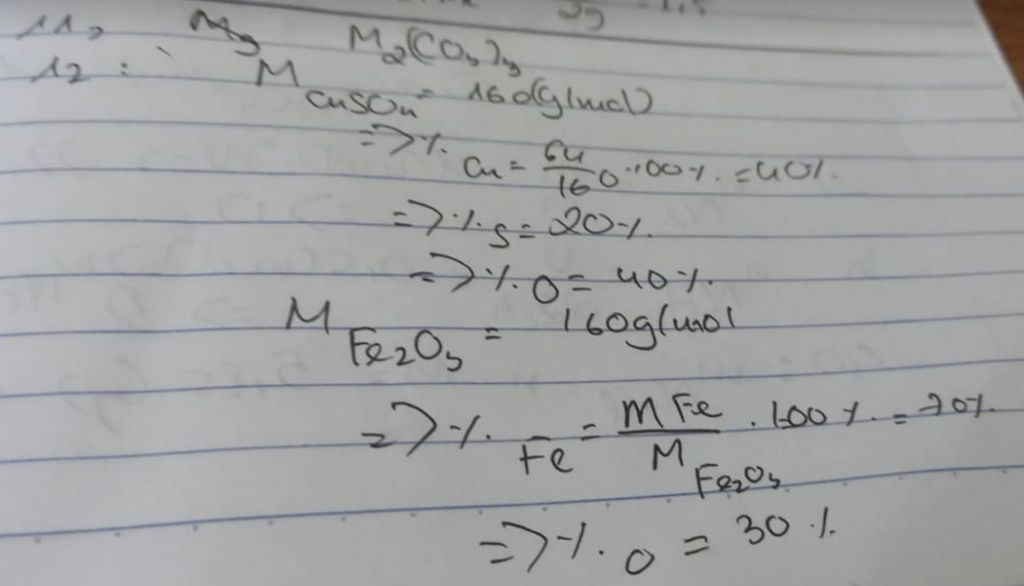 11,  Mg  M₂(CO₃)₃
12 :  M CuSO₄ = 160(g/mol)
=> % Cu = 64/160 . 100% = 40%.
=> % S = 20%.
=> % O = 40%.
M Fe₂O₃ = 160g/mol
=> % Fe = mFe/M Fe₂O₃ . 100% = 70%.
=> % O = 30%